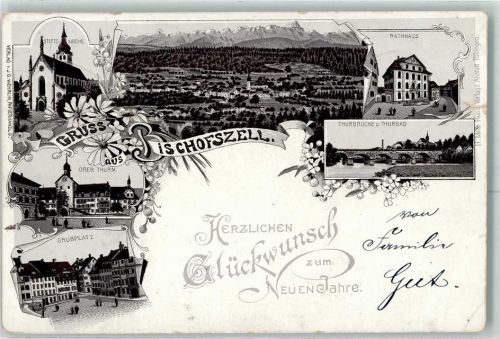 STIFTSKIRCHE
RATHHAUS
GRUSS
AUS
BISCHOFSZELL.
THURBRÜCKE U. THURBAD
OBER THURM
GRUBPLATZ
HERZLICHEN
Glückwunsch
zum
NEUEN Jahre.
von
Familie
Gut.